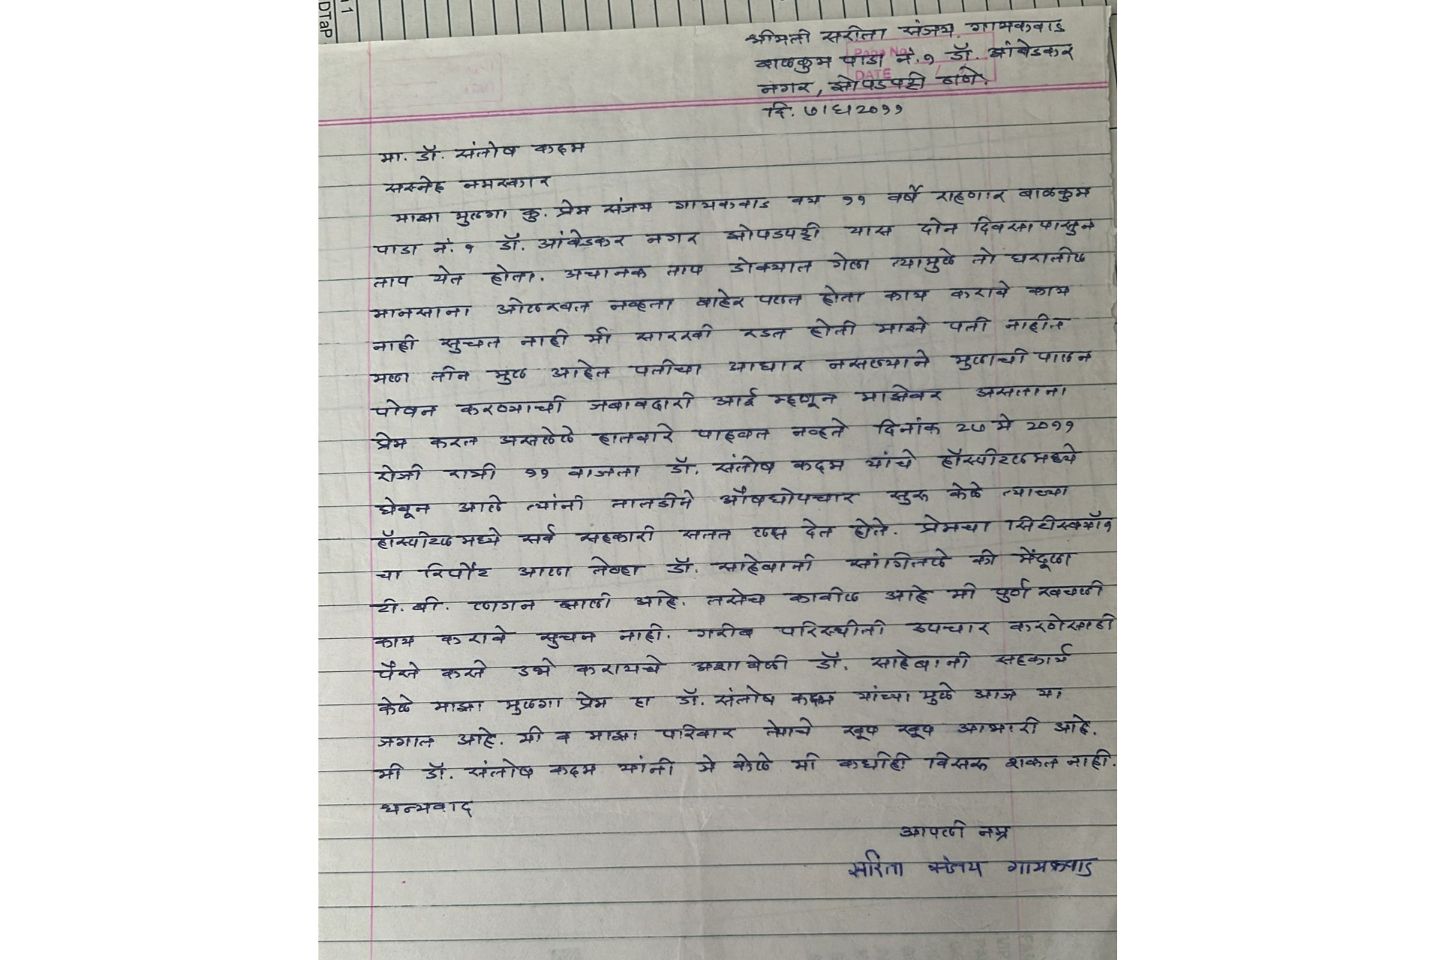 11
DTaP
श्रीमती सरीता संजय गायकवाड
Page No.
बाळकुम पाडा नं. १ डॉ. आंबेडकर
DATE
नगर, झोपडपट्टी ठाणे.
दि. ७।६।२०११
मा. डॉ. संतोष कदम
सस्नेह नमस्कार
माझा मुलगा कु. प्रेम संजय गायकवाड वय ११ वर्षे राहणार बाळकुम
पाडा नं. १ डॉ. आंबेडकर नगर झोपडपट्टी यास दोन दिवसापासुन
ताप येत होता. अचानक ताप डोक्यात गेला त्यामुळे तो घरातील
मानसाना ओळखत नव्हता बाहेर पळत होता काय करावे काय
नाही सुचत नाही मी सारखी रडत होती माझे पती नाहीत
मला तीन मुल आहेत पतीचा आधार नसल्याने मुलाची पालन
पोषन करण्याची जबाबदारी आई म्हणून माझेवर असताना
प्रेम करत असलेले हातवारे पाहवत नव्हते दिनांक २७ मे २०११
रोजी रात्री ११ वाजता डॉ. संतोष कदम यांचे हॉस्पीटलमध्ये
घेवून आले त्यांनी तातडीने औषधोपचार सुरु केले त्याच्या
हॉस्पीटलमध्ये सर्व सहकारी सतत लक्ष देत होते. प्रेमचा सिटीस्कॅन
चा रिपोर्ट आला तेव्हा डॉ. साहेबांनी सांगितले की मेंदूला
टी. बी. लागन झाली आहे. तसेच कावीळ आहे मी पुर्ण खचली
काय करावे सुचत नाही. गरीब परिस्थीती उपचार करणेसाठी
पैसे कसे उभे करायचे अशा वेळी डॉ. साहेबांनी सहकार्य
केले माझा मुलगा प्रेम हा डॉ. संतोष कदम यांच्या मुळे आज या
जगात आहे. मी व माझा परिवार त्यांचे खूप खूप आभारी आहे.
मी डॉ. संतोष कदम यांनी जे केले मी कधीही विसरू शकत नाही.
धन्यवाद
आपली नम्र
सरिता संजय गायकवाड